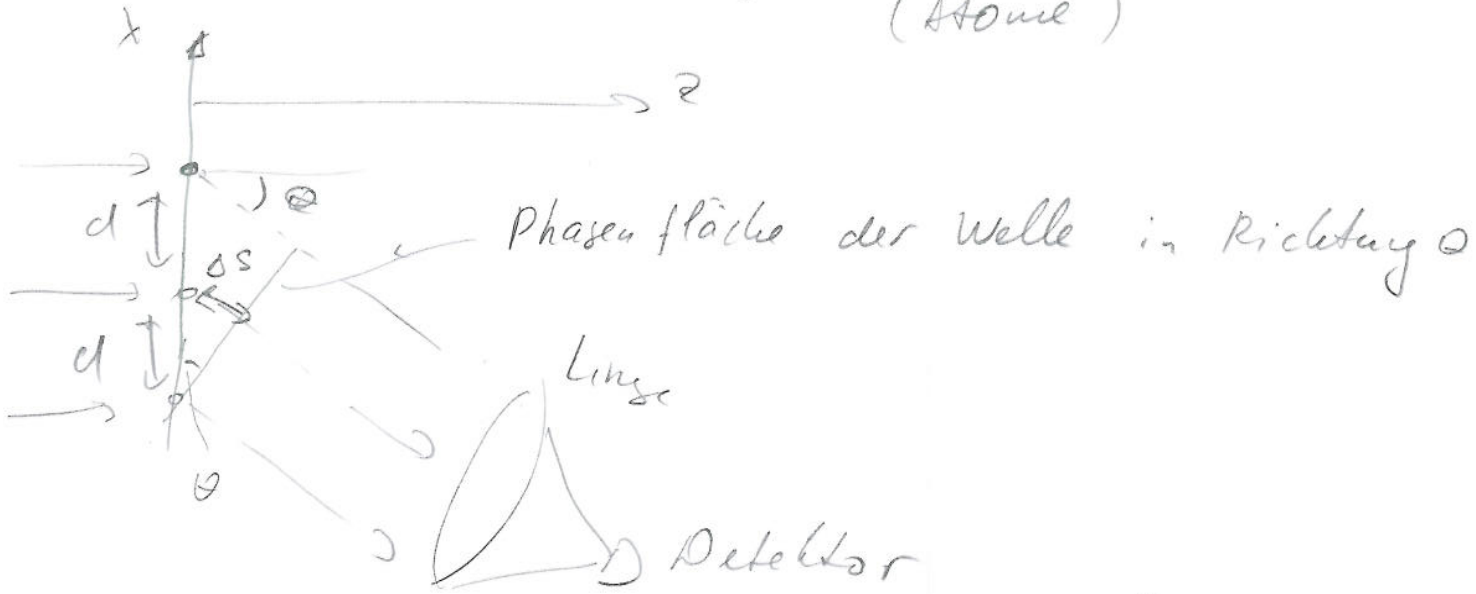 (Atome)
x
z
d
Θ
Phasenfläche der Welle in Richtung Θ
Δs
d
Linse
Θ
Detektor